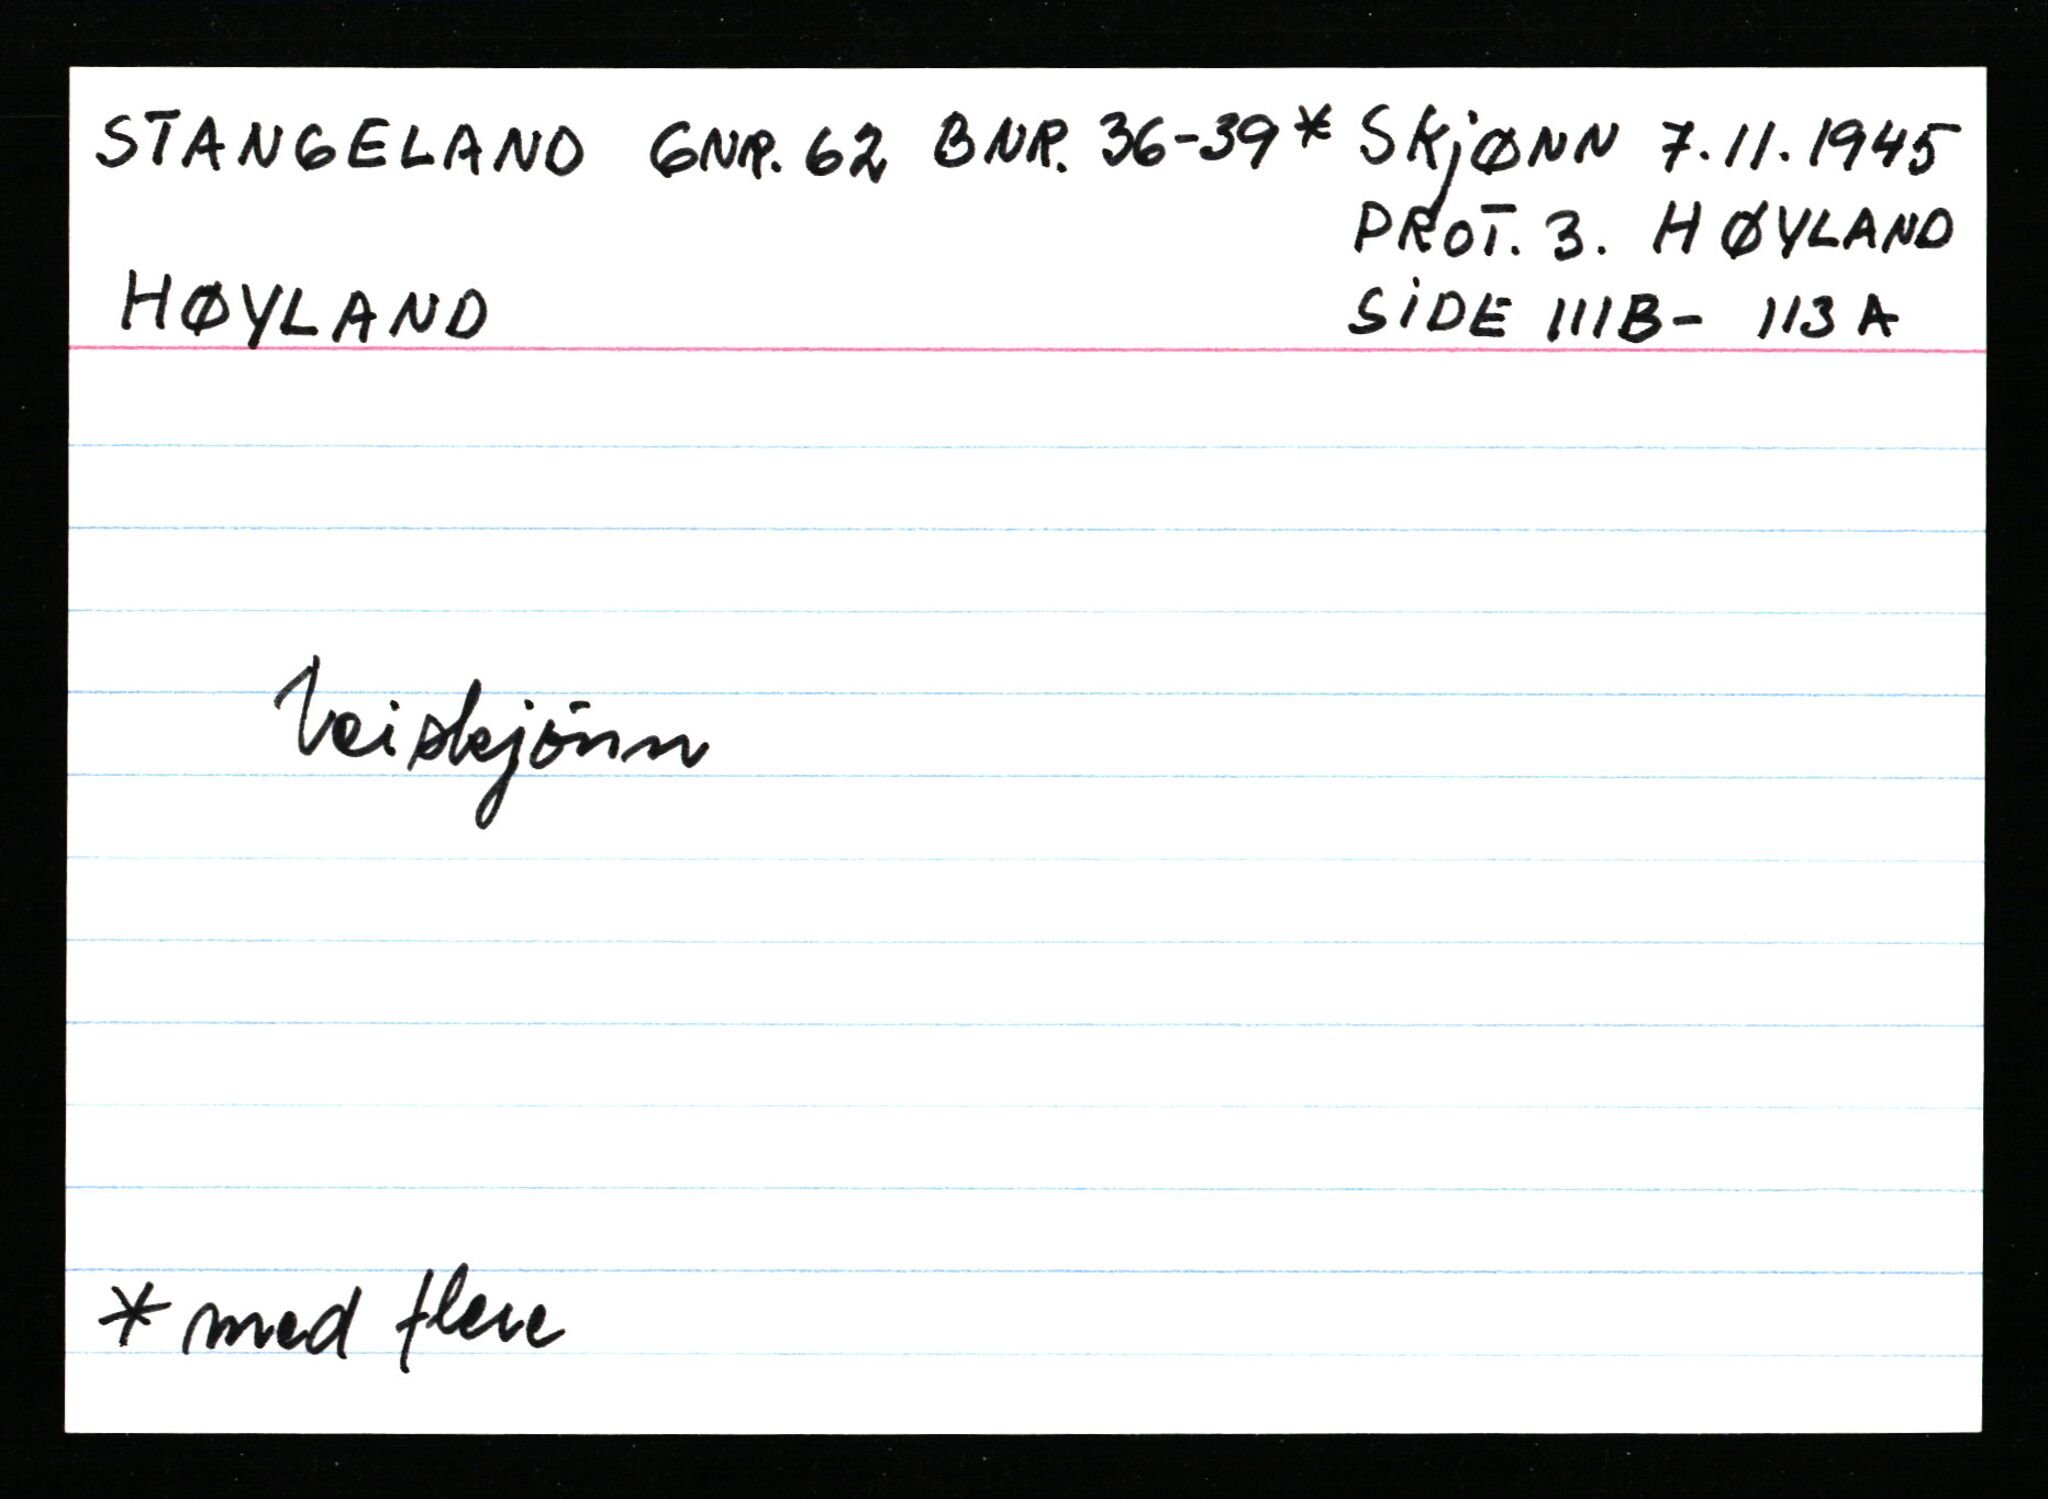 STANGELAND GNR. 62 BNR. 36-39* SKjØNN 7.11.1945
PROT. 3. HØYLAND
HØYLAND SiDE 111B - 113A
Veiskjönn
* med flere